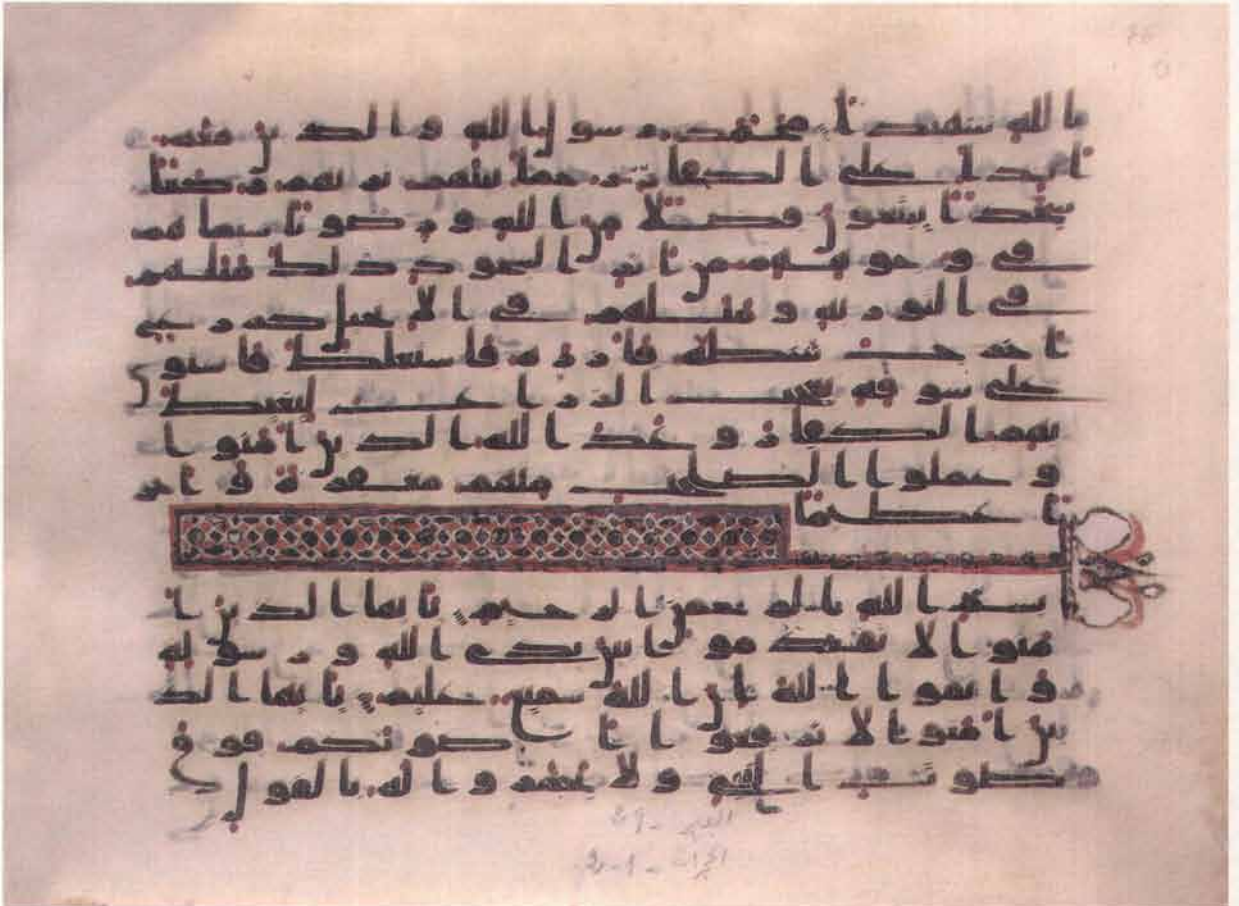 بالله شهيدا محمد رسول الله والذين معه
اشدا على الكفار رحما بينهم تريهم ركعا
سجدا يبتغون فضلا من الله ورضونا سيماهم
في وجوههم من اثر السجود ذلك مثلهم
في التورية ومثلهم في الانجيل كزرع
اخرج شطه فازره فاستغلظ فاستوى
على سوقه يعجب الزراع ليغيظ
بهم الكفار وعد الله الذين امنوا
وعملوا الصلحت منهم مغفرة واجر
ا عظيما
بسم الله الرحمن الرحيم يايها الذين ا
منوا لا تقدموا بين يدي الله ورسوله
واتقوا الله ان الله سميع عليم يايها الذ
ين امنوا لا ترفعوا اصوتكم فوق
صوت النبي ولا تجهروا له بالقول
الفتح - 29
الحجرات - 1-2